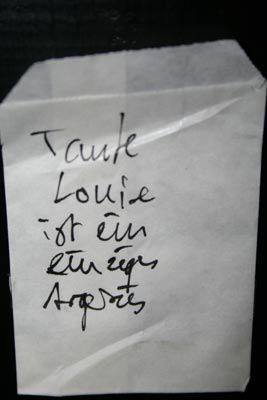 Tante
Louise
ist ein
einziges
Ärgernis